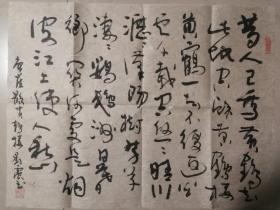 昔人已乘黄鶴去
此地空餘黄鶴樓
黄鶴一去不復返白
雲千載空悠悠晴川
歷歷漢陽樹芳草
萋萋鸚鵡洲日暮
鄉關何處是煙
波江上使人愁
崔顥黄鶴樓